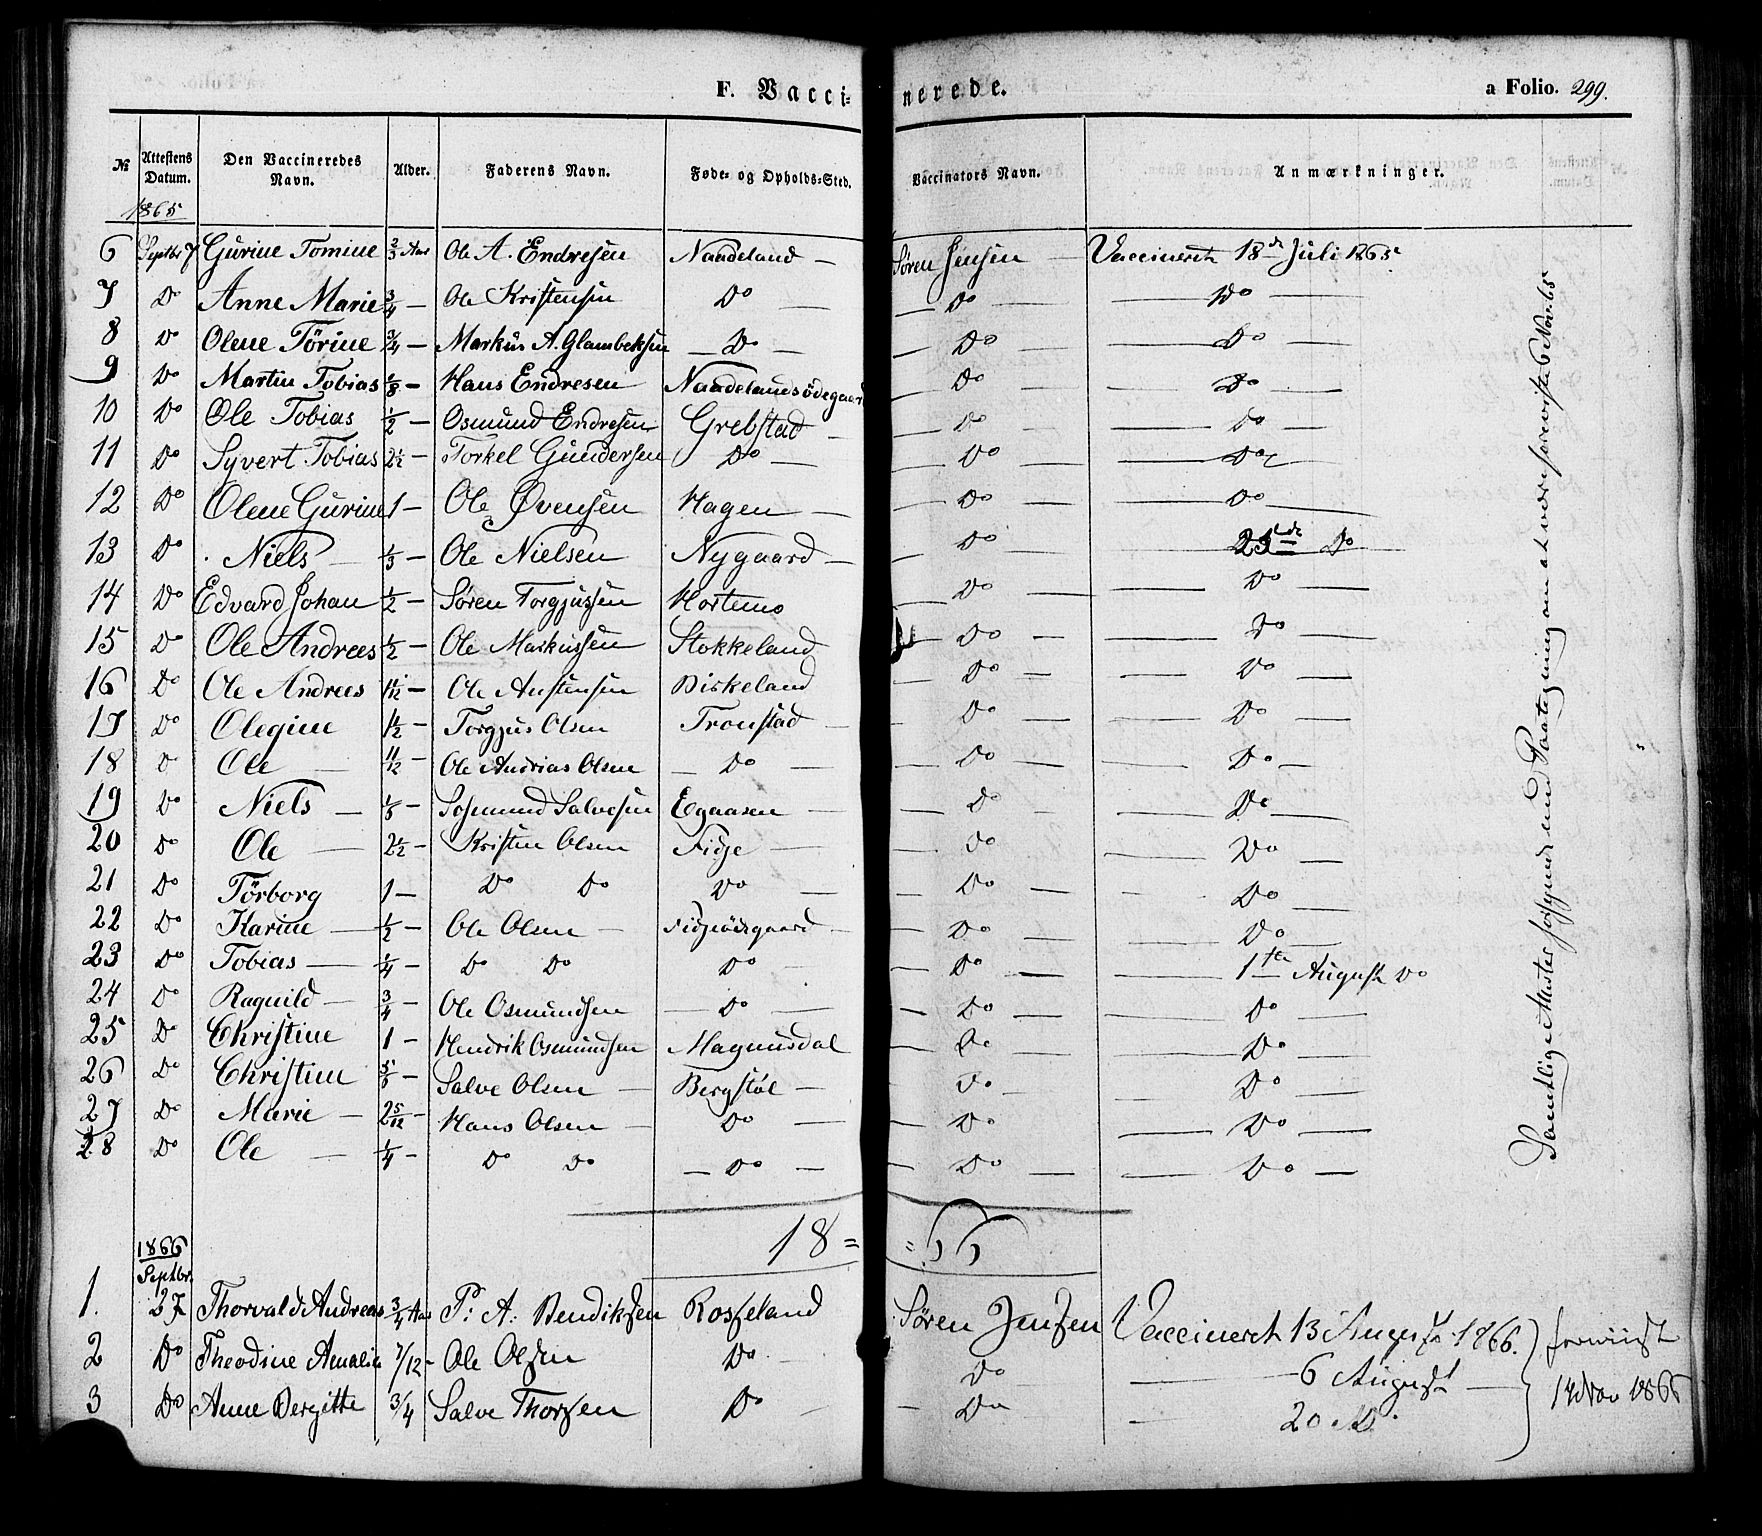 F. Vaccinerede. a Folio. 299.
№ Attestens Datum. Den Vaccineredes Navn. Alder. Faderens Navn. Føde- og Opholds-Sted. Vaccinators Navn. Anmærkninger.
1865
6 Septbr 7 Gurine Tomine 2/3 Aar Ole A. Endresen Naadeland — Søren Jensen — Vaccineret 18de Juli 1865
7 Do Anne Marie 3/4 — Ole Kristensen Do — Do — Do —
8 Do Olene Törine 3/4 — Markus A. Glambeksen — Do — — Do — — Do —
9 Do Martin Tobias 1/8 — Hans Endresen Naadelandsødegaard — Do — — Do —
10 Do Ole Tobias 1/2 — Osmund Endresen Grebstad — — Do — — Do —
11 Do Syvert Tobias 2 1/2 — Torkel Gundersen Do — — Do — — Do —
12 Do Olene Gurine 1 — Ole Øvensen Hagen — — Do — — Do —
13 Do Niels — 1/3 — Ole Nielsen Nygaard — — Do — — 25de Do
14 Do Edvard Johan 1/2 — Søren Torgjussen Hortemo — Do — — Do —
15 Do Ole Andrees 1/2 — Ole Markussen Stokkeland — Do — — Do —
16 Do Ole Andrees 1 1/12 — Ole Austensen Birkeland — Do — — Do —
17 Do Olegine 1 1/2 — Torgjus Olsen Tronstad — — Do — — Do —
18 Do Ole — 11/12 — Ole Andrias Olsen — Do — — Do — — Do —
19 Do Niels — 1/8 — Sosmund Salvesen Egaasen — — Do — — Do —
20 Do Ole — 2 1/2 — Kristen Olsen Fidje — — Do — — Do —
21 Do Törborg 1 — Do Do Do — — Do — — Do —
22 Do Karine — 1/2 — Ole Olsen — Fidjeødegaard — — Do — — Do —
23 Do Tobias — 1/4 — Do Do Do — — Do — — 1ste August Do
24 Do Ragnild — 3/4 — Ole Osmundsen — Do — — Do — — Do —
25 Do Christine 1 — Hendrik Osmundsen Magnusdal — Do — — Do —
26 Do Christine 5/6 — Salve Olsen — Bergstøl — — Do — — Do —
27 Do Marie — 2 5/12 — Hans Olsen — Do — — Do — — Do —
28 Do Ole — 1/4 — Do Do — Do — — Do — — Do —
Samtlige Attester
18 = = 66
1866
Septbr.
1. 27 Thorvald Andreas 3/4 Aar P: A: Bendiksen Rosseland Søren Jensen Vaccineret 13 August 1866.
2 Do Theodine Amalie 7/12 — Ole Olsen Do — Do — 6 August —
3 Do Anne Bergitte 3/4 Salve Thorsen Do — Do — 20 Do.
foreviist